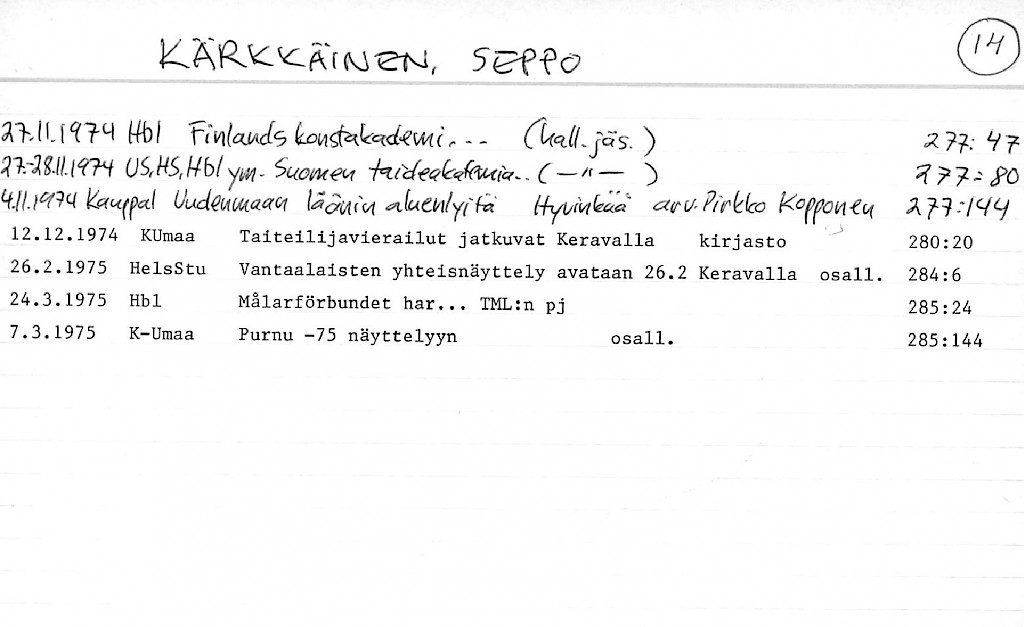 KÄRKKÄINEN, SEPPO 14
27.11.1974 Hbl Finlands konstakademi... (hall.jäs.) 277:47
27.-28.11.1974 US, HS, Hbl ym. Suomen taideakatemia.. (—"—) 277:80
4.11.1974 Kauppal Uudenmaan läänin aluenlyitä Hyvinkää arv. Pirkko Kopponen 277:144
12.12.1974 KUmaa Taiteilijavierailut jatkuvat Keravalla kirjasto 280:20
26.2.1975 HelsStu Vantaalaisten yhteisnäyttely avataan 26.2 Keravalla osall. 284:6
24.3.1975 Hbl Målarförbundet har... TML:n pj 285:24
7.3.1975 K-Umaa Purnu -75 näyttelyyn osall. 285:144